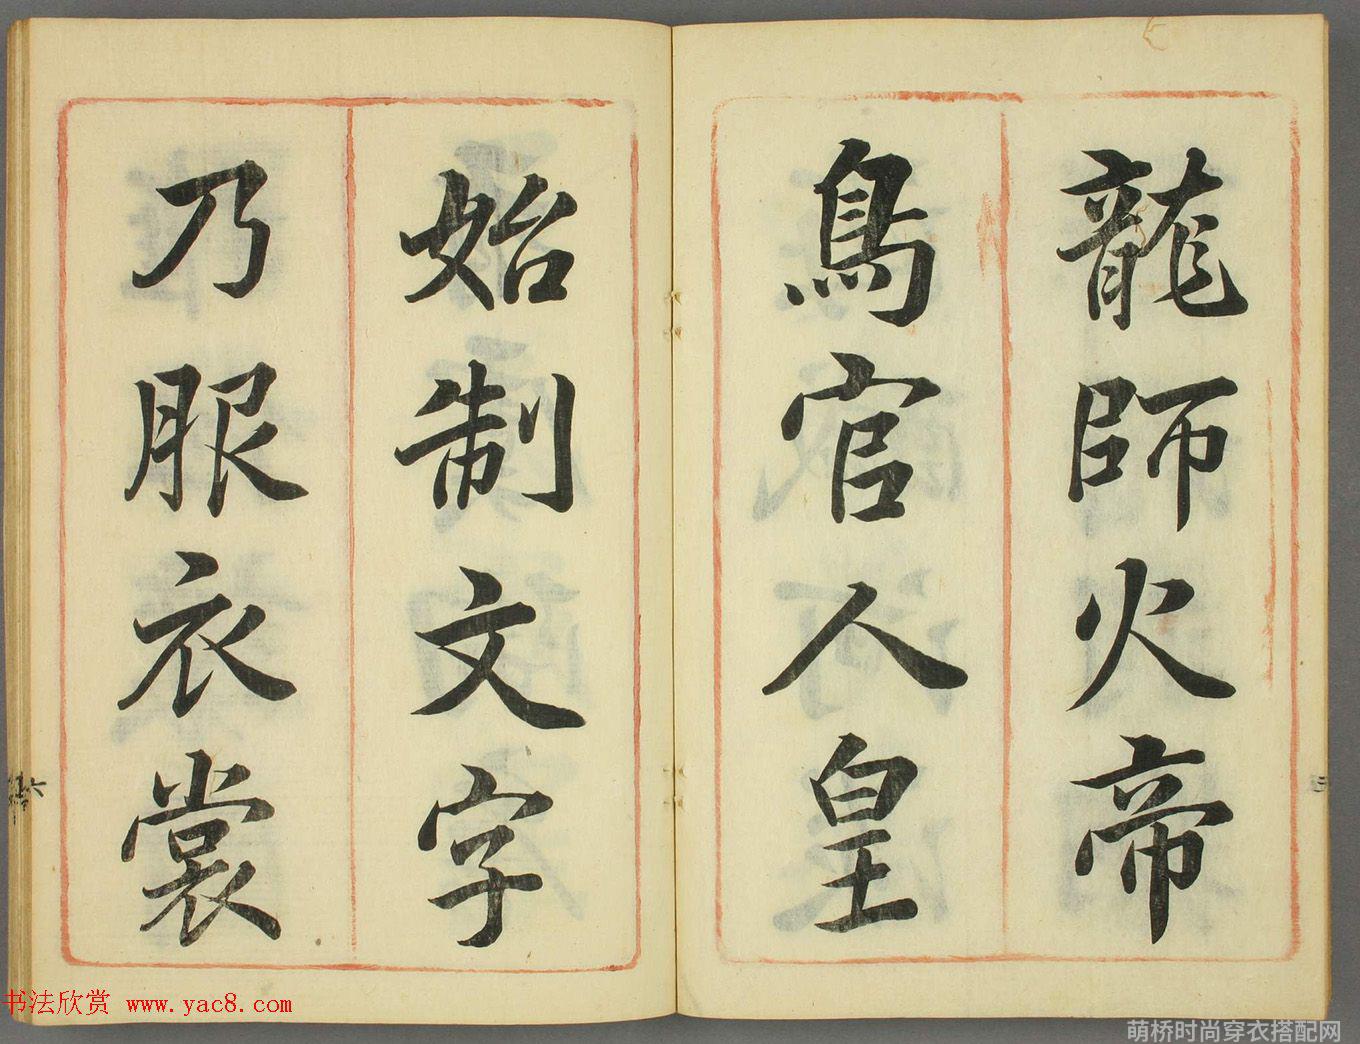 龍師火帝
鳥官人皇
始制文字
乃服衣裳
书法欣赏 www.yac8.com
萌桥时尚穿衣搭配网